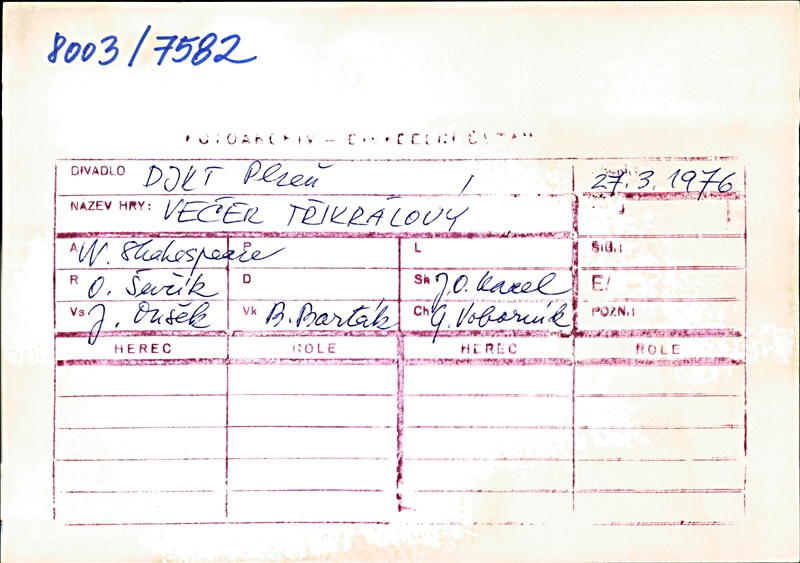 8003/7582
FOTOARCHIV – DIVADELNÍ ÚSTAV
DIVADLO DJKT Plzeň / 27.3.1976
NÁZEV HRY: VEČER TŘÍKRÁLOVÝ
A W. Shakespeare P L SIG.:
R O. Ševčík D Sh J.O. Karel E/
Vs J. Dušek Vk B. Barták Ch G. Voborník POZN.:
HEREC ROLE HEREC ROLE